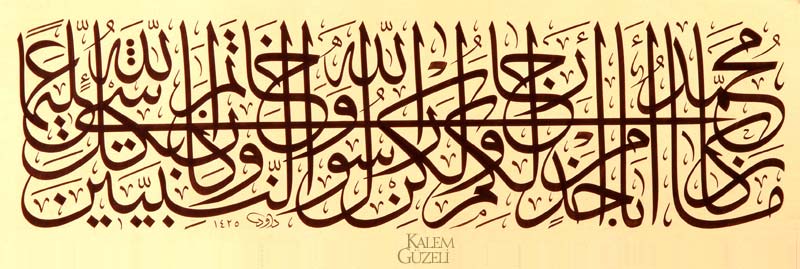 ما كان محمد أبا أحد من رجالكم ولكن رسول الله وخاتم النبيين وكان الله بكل شيء عليما
داود ١٤٢٥
KALEM
GÜZELİ